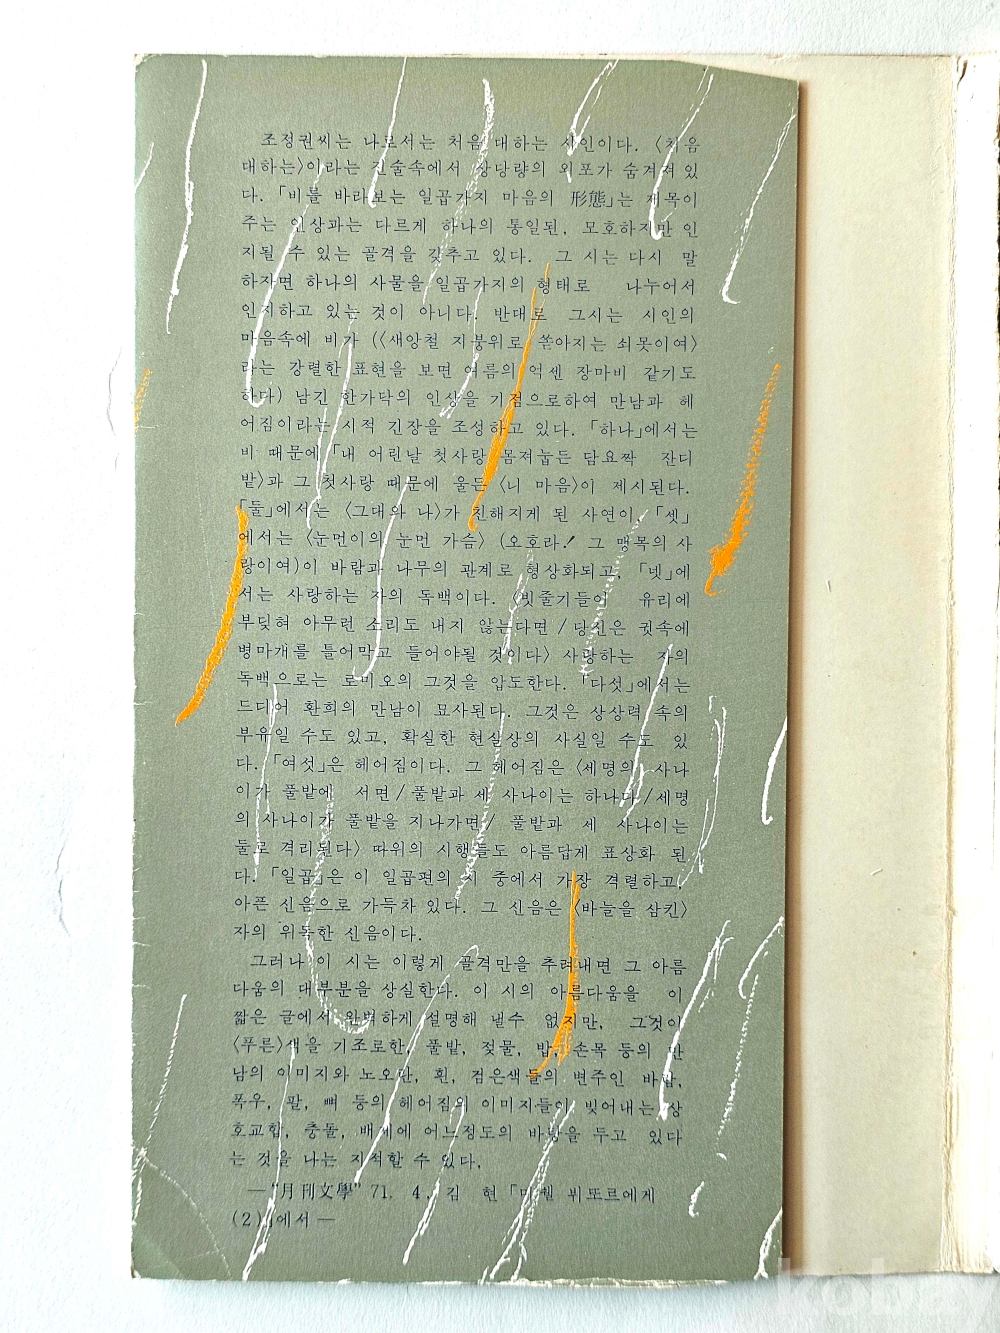 조정권씨는 나로서는 처음 대하는 시인이다. 〈처음
대하는〉이라는 진술속에서 상당량의 외포가 숨겨져 있
다. 「비를 바라보는 일곱가지 마음의 形態」는 제목이
주는 인상과는 다르게 하나의 통일된, 모호하지만 인
지될 수 있는 골격을 갖추고 있다. 그 시는 다시 말
하자면 하나의 사물을 일곱가지의 형태로 나누어서
인지하고 있는 것이 아니다. 반대로 그시는 시인의
마음속에 비가 (〈새앙철 지붕위로 쏟아지는 쇠못이여〉
라는 강렬한 표현을 보면 여름의 억센 장마비 같기도
하다) 남긴 한가닥의 인상을 기점으로하여 만남과 헤
어짐이라는 시적 긴장을 조성하고 있다. 「하나」에서는
비 때문에 「내 어린날 첫사랑 몸져눕든 담요짝 잔디
밭〉과 그 첫사랑 때문에 울든 〈니 마음〉이 제시된다.
「둘」에서는 〈그대와 나〉가 친해지게 된 사연이, 「셋」
에서는 〈눈먼이의 눈먼 가슴〉 (오호라! 그 맹목의 사
랑이여)이 바람과 나무의 관계로 형상화되고, 「넷」에
서는 사랑하는 자의 독백이다. 〈빗줄기들이 유리에
부딪혀 아무런 소리도 내지 않는다면 / 당신은 귓속에
병마개를 틀어막고 들어야될 것이다〉 사랑하는 자의
독백으로는 로미오의 그것을 압도한다. 「다섯」에서는
드디어 환희의 만남이 묘사된다. 그것은 상상력 속의
부유일 수도 있고, 확실한 현실상의 사실일 수도 있
다. 「여섯」은 헤어짐이다. 그 헤어짐은 〈세명의 사나
이가 풀밭에 서면 / 풀밭과 세 사나이는 하나다 / 세명
의 사나이가 풀밭을 지나가면 / 풀밭과 세 사나이는
둘로 격리된다〉 따위의 시행들도 아름답게 표상화 된
다. 「일곱」은 이 일곱편의 시 중에서 가장 격렬하고,
아픈 신음으로 가득차 있다. 그 신음은 〈바늘을 삼킨〉
자의 위독한 신음이다.
그러나 이 시는 이렇게 골격만을 추려내면 그 아름
다움의 대부분을 상실한다. 이 시의 아름다움을 이
짧은 글에서 완벽하게 설명해 낼수 없지만, 그것이
〈푸른〉색을 기조로한, 풀밭, 젖물, 밥, 손목 등의 만
남의 이미지와 노오란, 흰, 검은색들의 변주인 바람,
폭우, 팔, 뼈 등의 헤어짐의 이미지들이 빚어내는 상
호교합, 충돌, 배제에 어느정도의 바탕을 두고 있다
는 것을 나는 지적할 수 있다.
—“月刊文學” 71. 4, 김 현 「미셸 뷔또르에게
(2)」에서—
koba